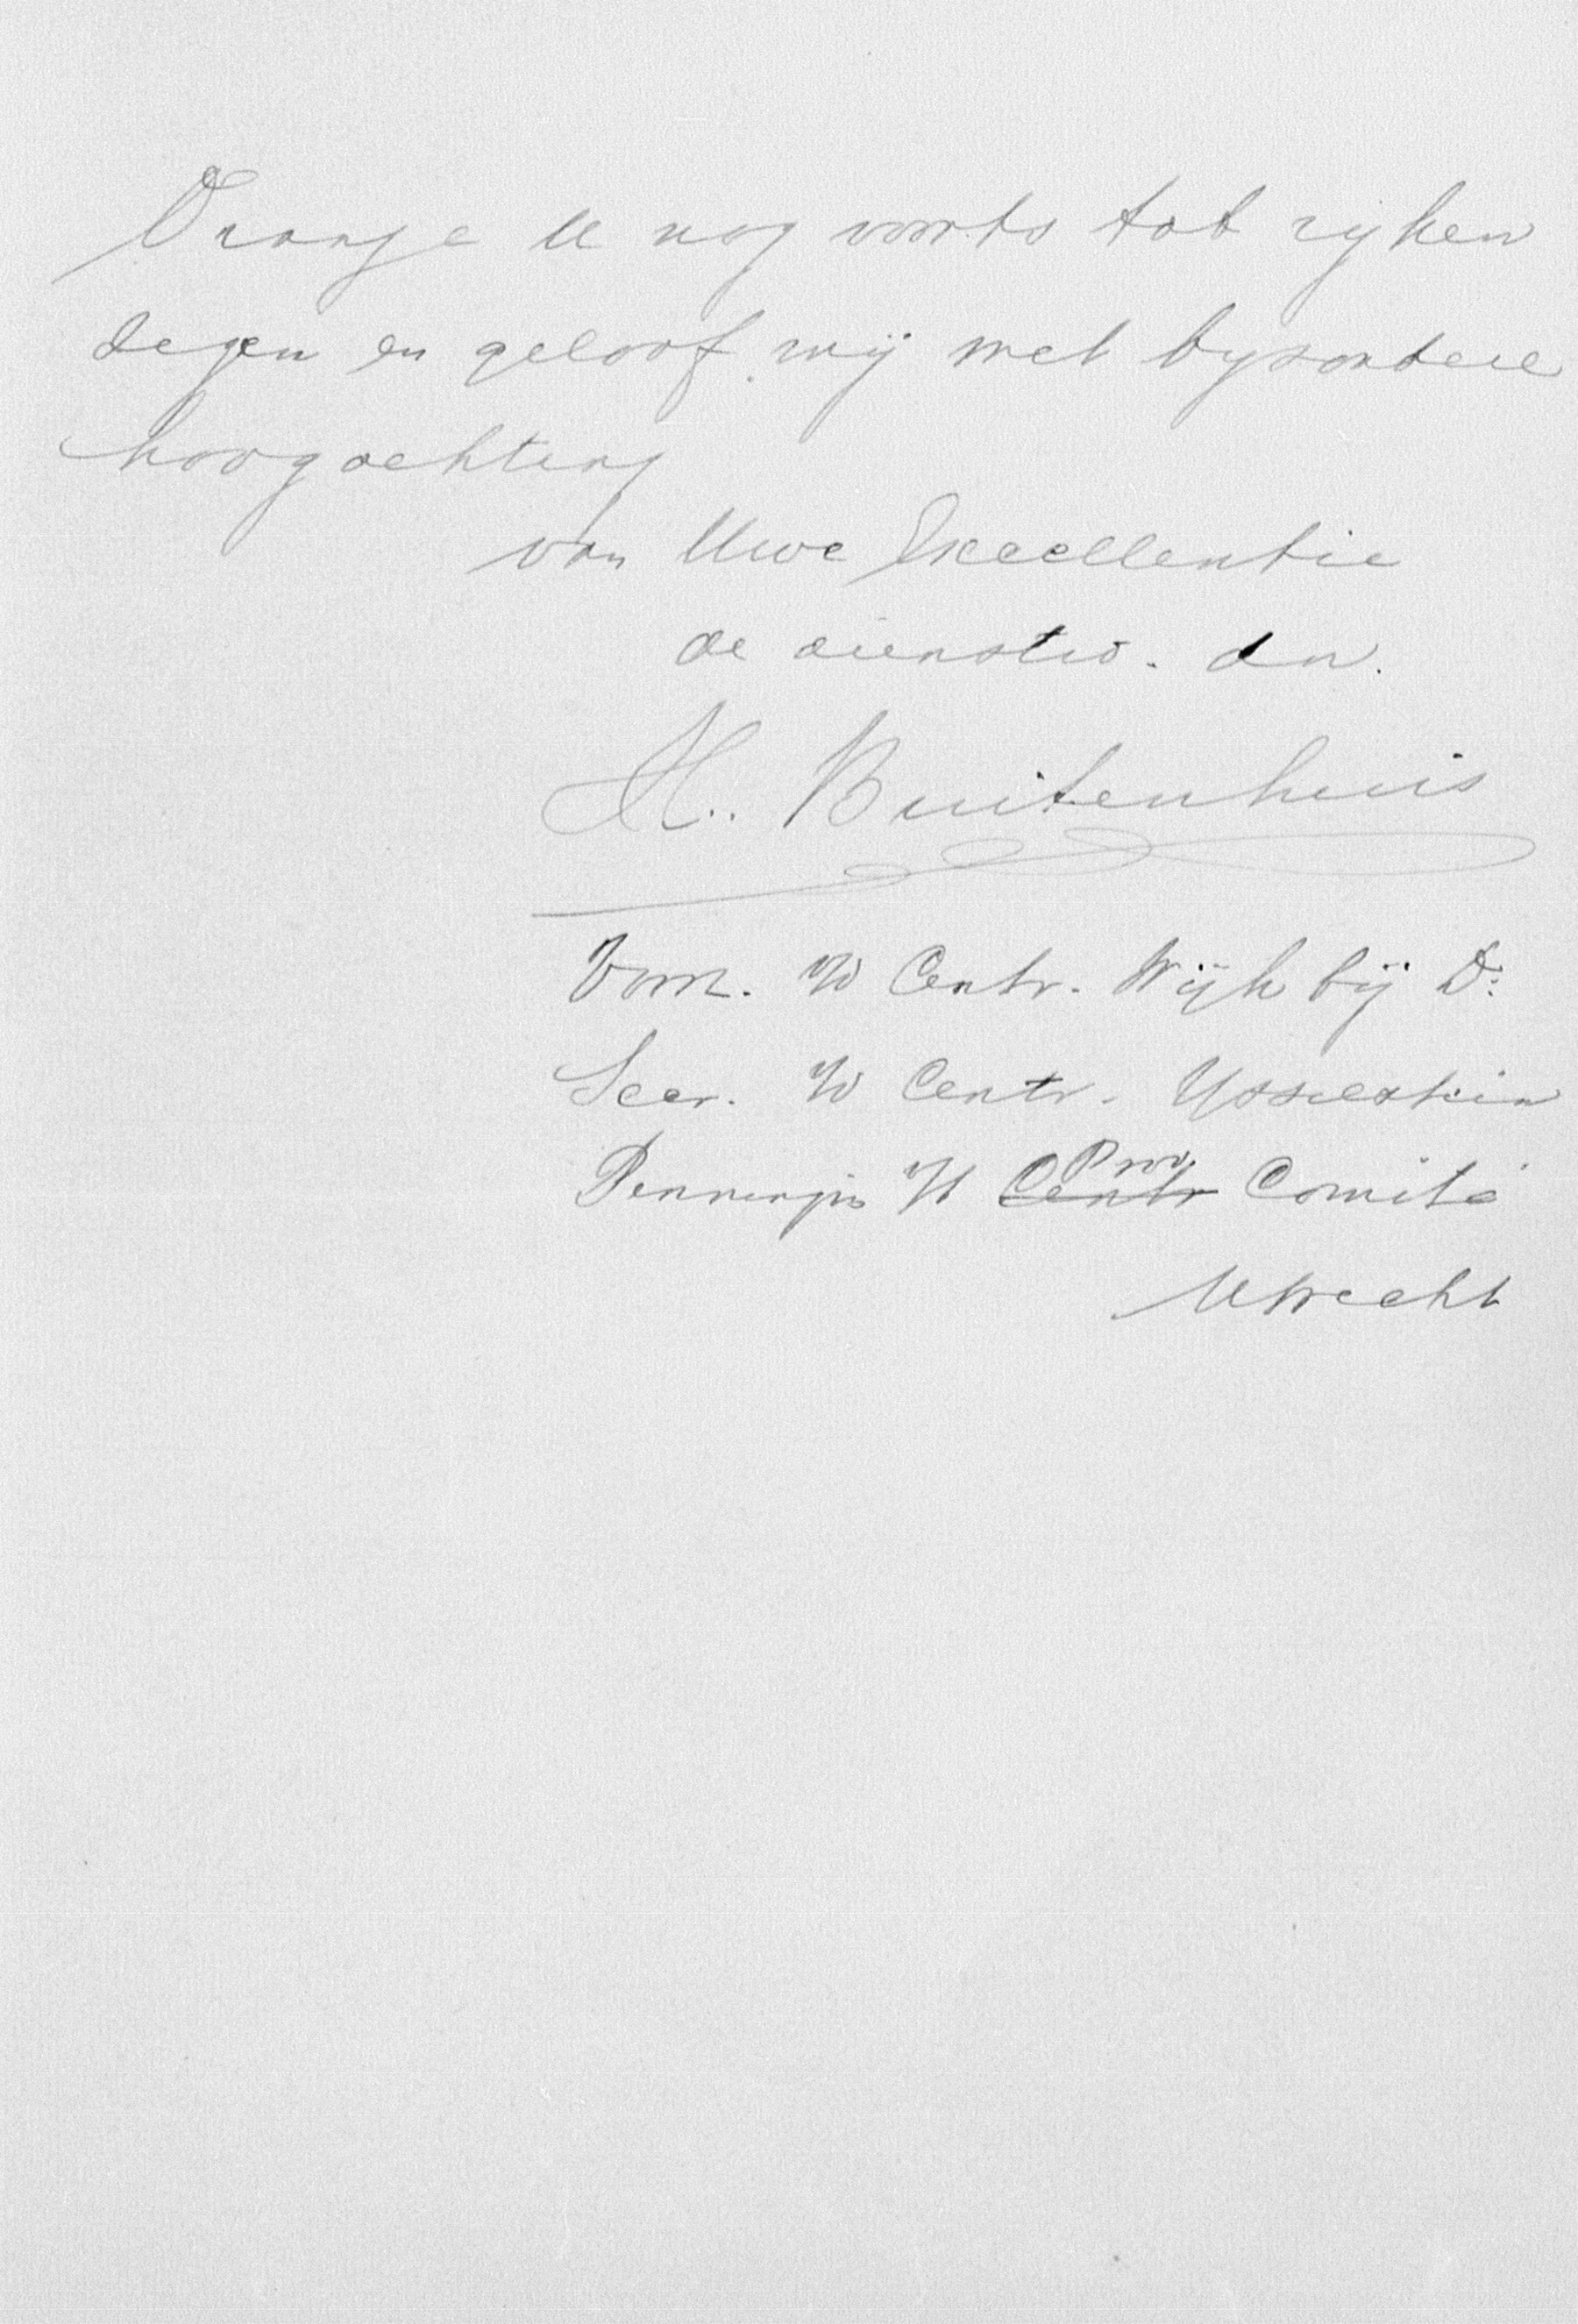 Oranje U nog voorts tot ryken
Zegen en geloof mij met byzondere
hoogachting
van Uwe Excellentie
de dienstw. dn.
H. Buitenhuis
Voorz. Centr. Wijk bij D.
Secr. Centr. Ysselstein
Penningm Prov. Comité
Utrecht